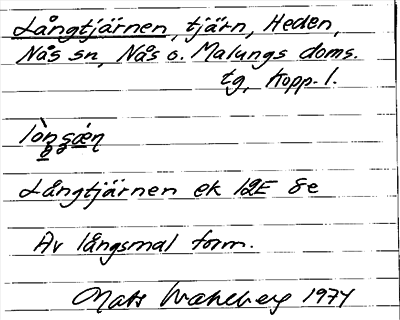 Långtjärnen, tjärn, Heden,
Nås sn, Nås o. Malungs doms.
tg, Kopp. l.
Långtjärnen ek 12E 8e
Av långsmal form.
Mats Wahlberg 1974